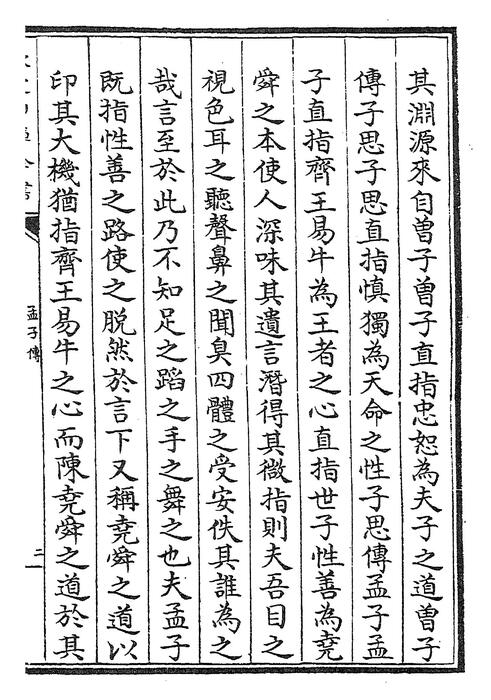 其淵源來自曽子曽子直指忠恕為夫子之道曽子
傳子思子思直指慎獨為天命之性子思傳孟子孟
子直指齊王易牛為王者之心直指世子性善為堯
舜之本使人深味其遺言潛得其微指則夫吾目之
視色耳之聽聲鼻之聞臭四體之受安佚其誰為之
哉言至於此乃不知足之蹈之手之舞之也夫孟子
既指性善之路使之脫然於言下又稱堯舜之道以
印其大機猶指齊王易牛之心而陳堯舜之道於其
孟子傳